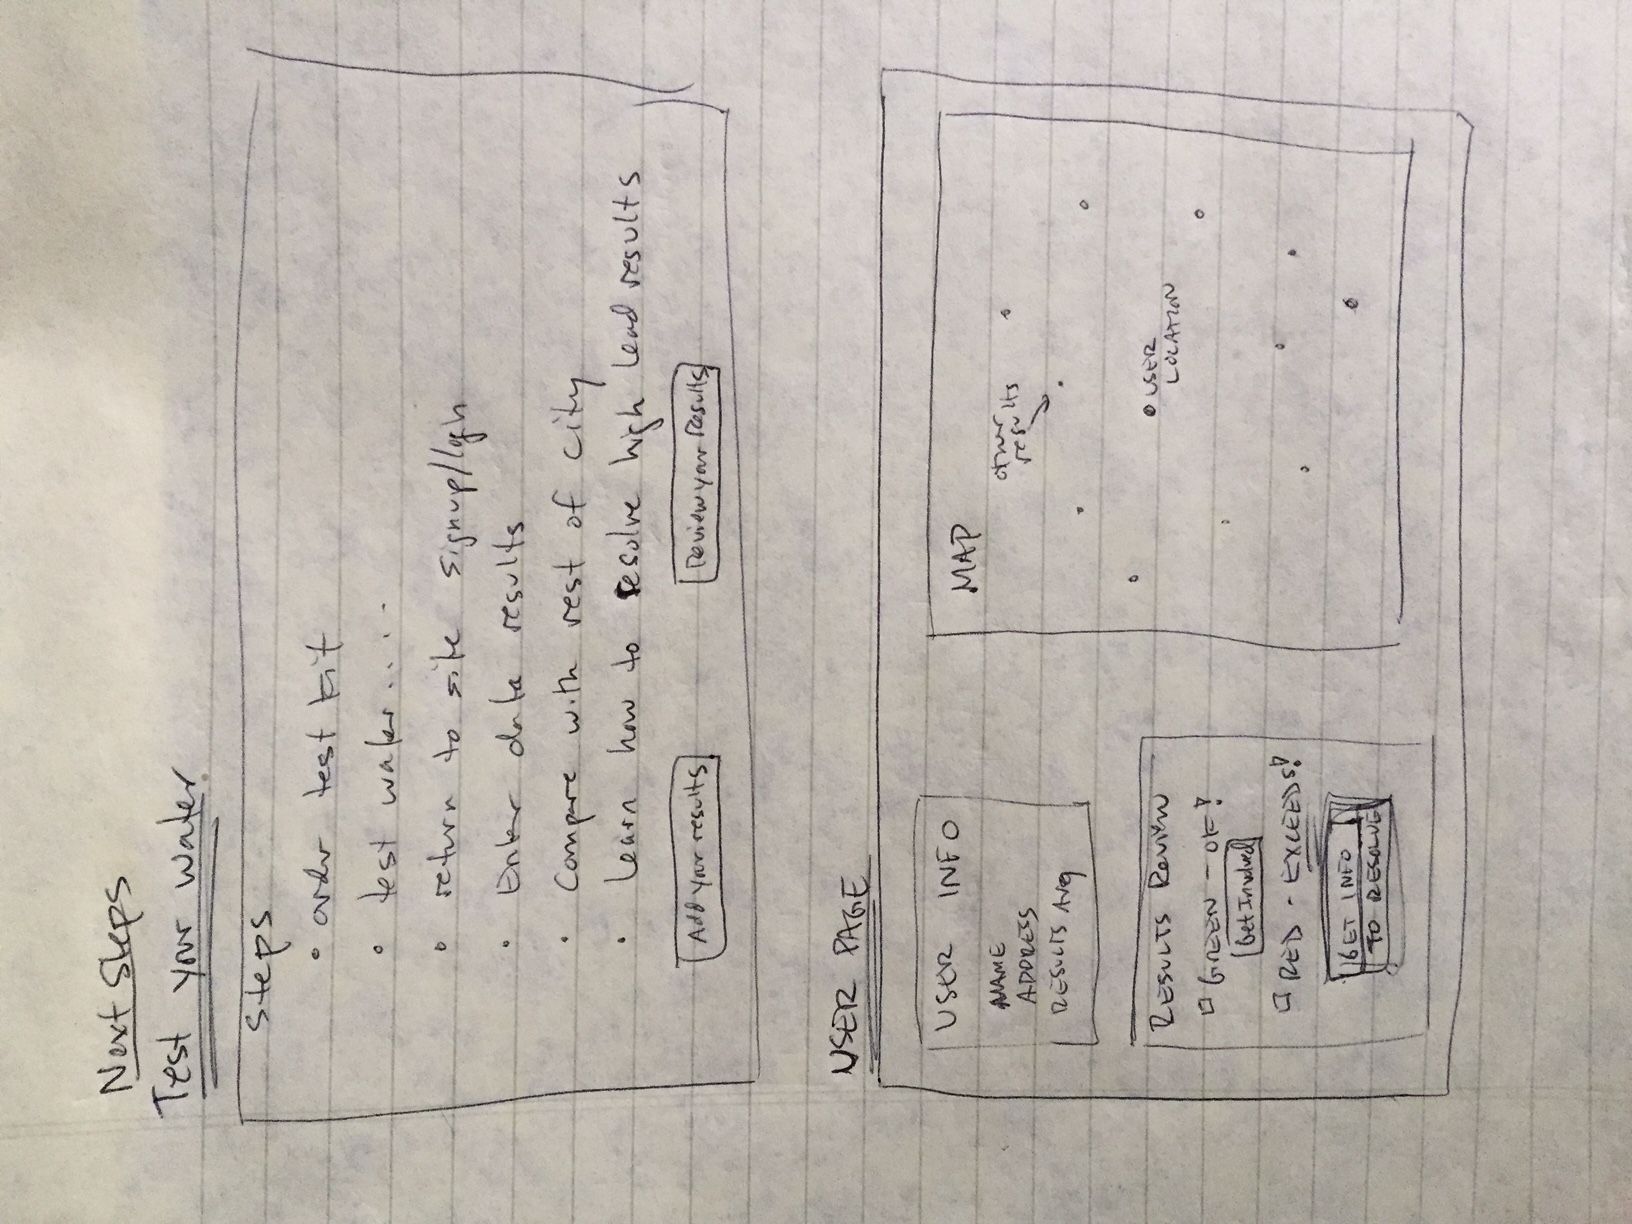 Next Steps
Test your water
Steps
• order test kit
• test water.....
• return to site signup/login
• Enter data results
• Compare with rest of city
• Learn how to resolve high lead results
Add your results
Review your Results
USER PAGE
USER INFO
NAME
ADDRESS
RESULTS Avg
RESULTS REVIEW
GREEN - OK!
Get Involved
RED - EXCEEDS!
GET INFO
TO RESOLVE
MAP
other
results
USER
LOCATION